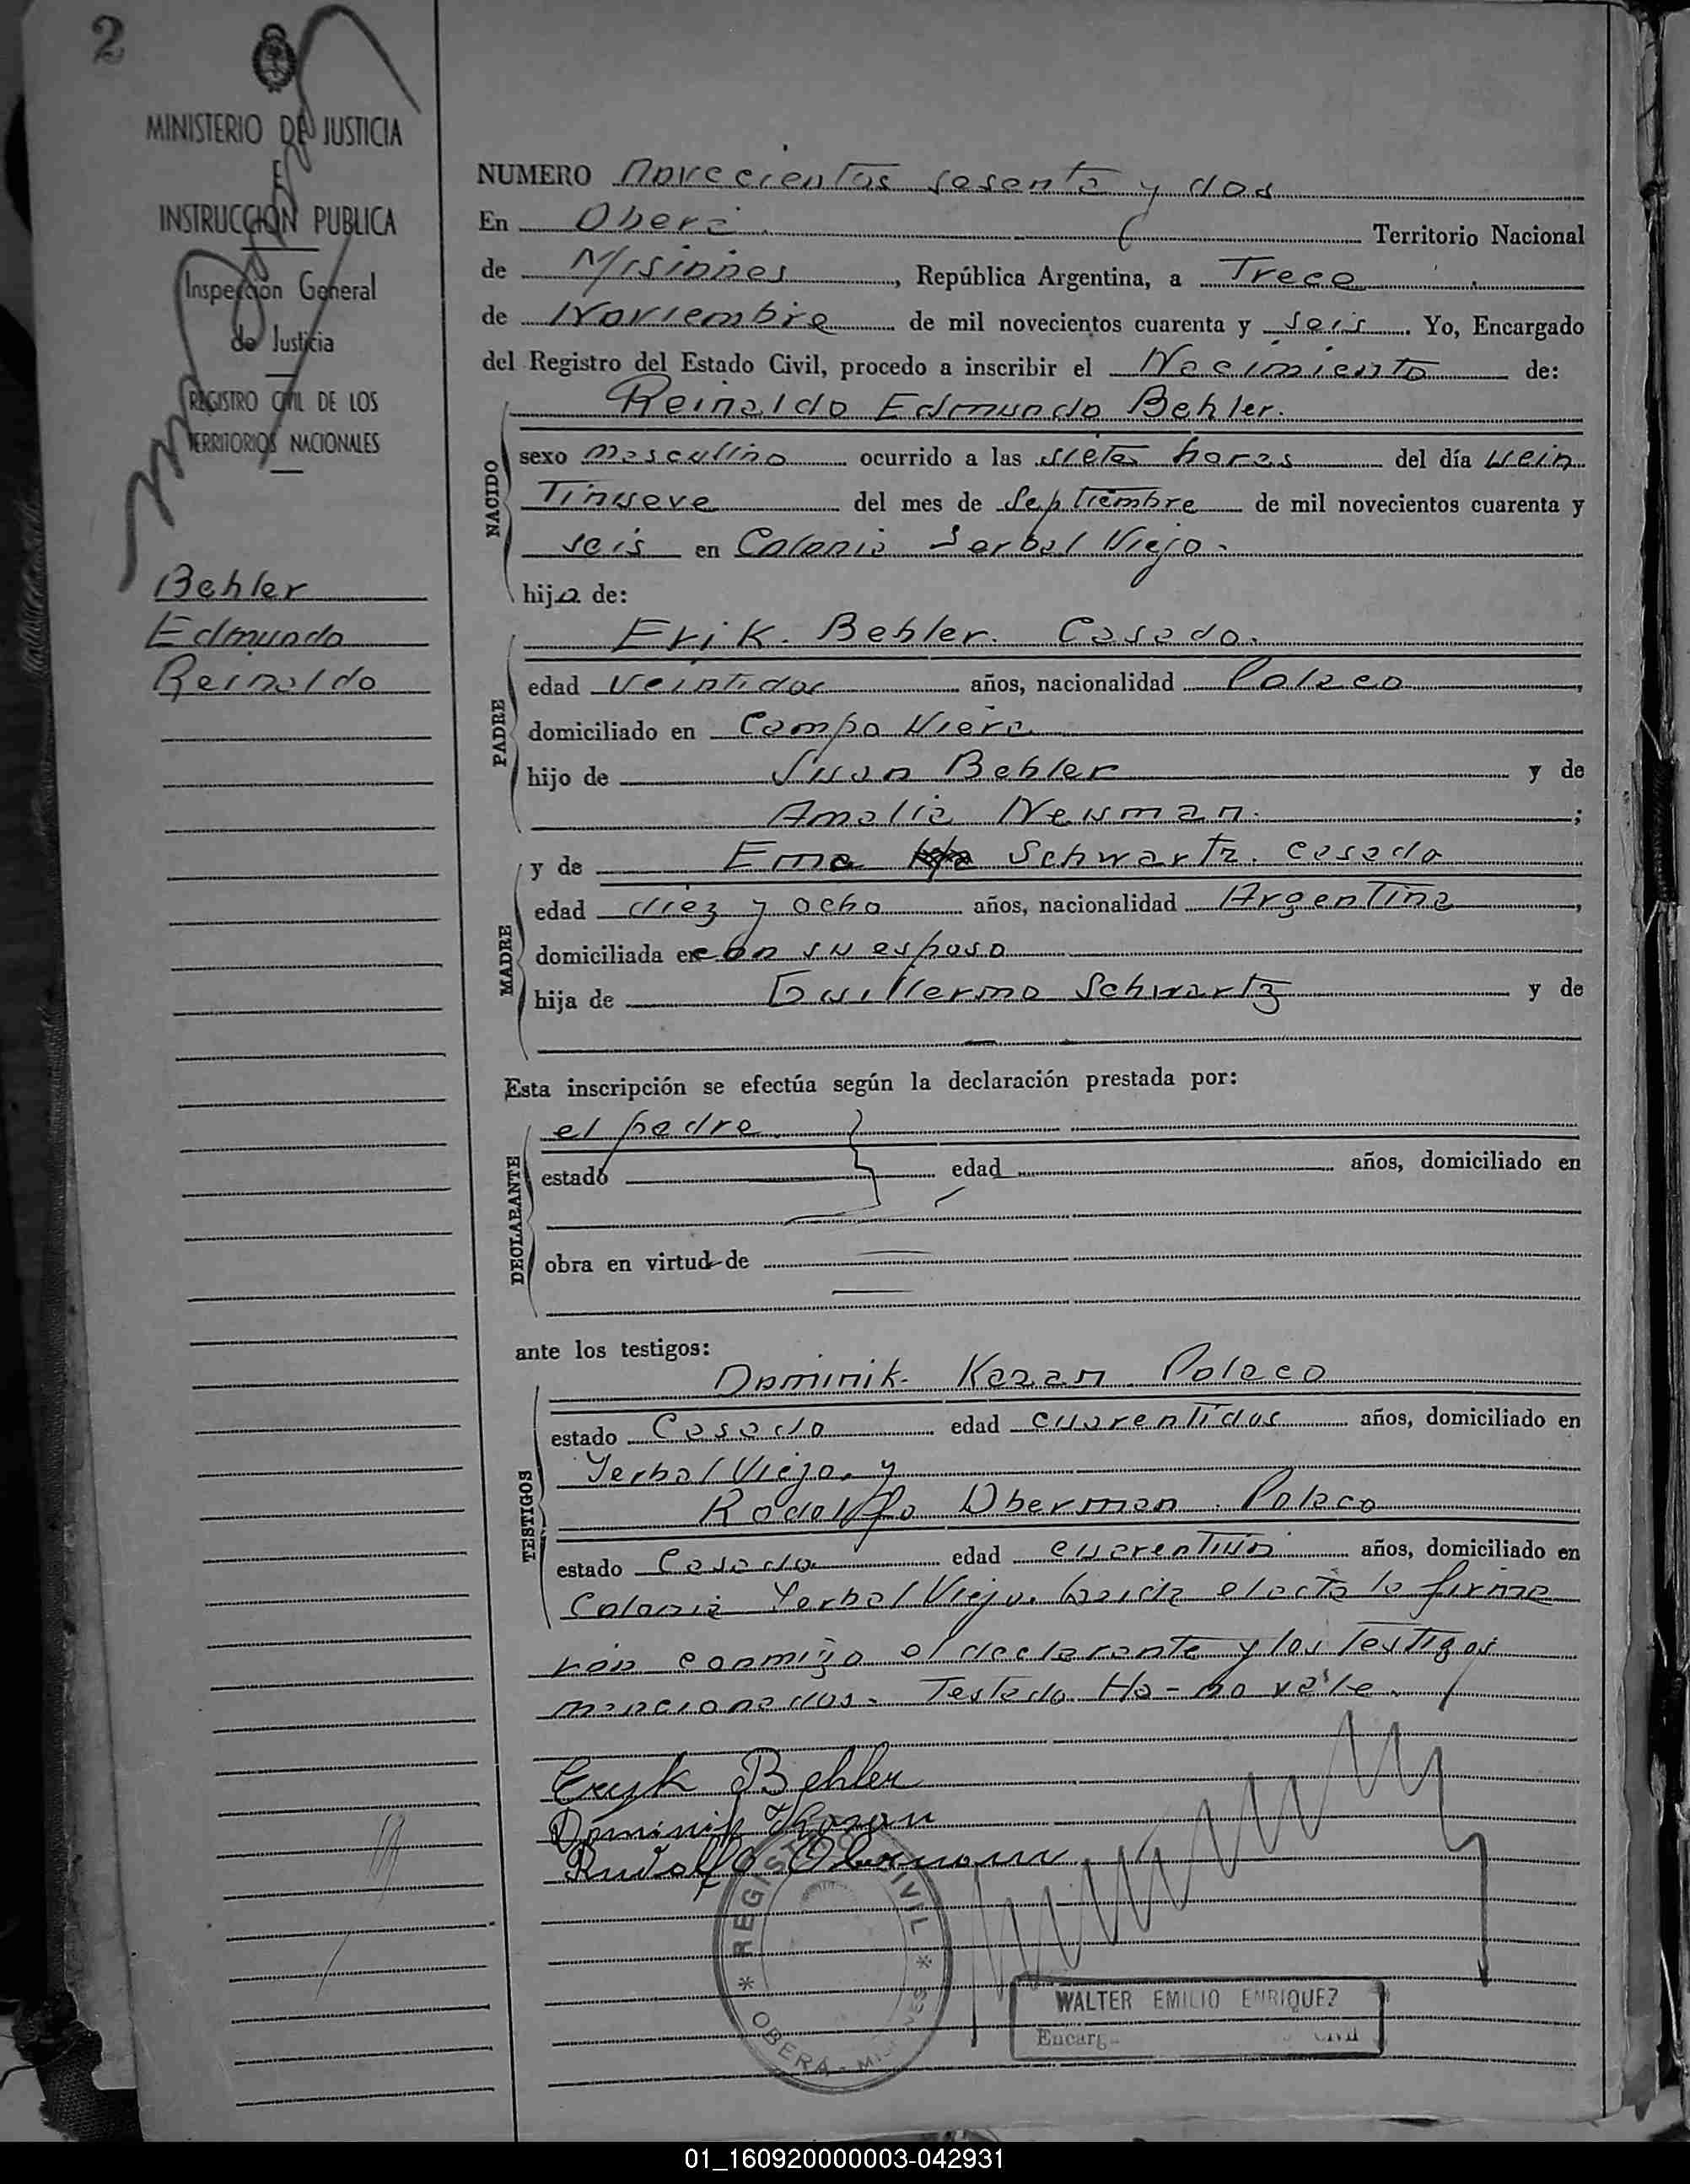 2
MINISTERIO DE JUSTICIA
E
INSTRUCCION PUBLICA
Inspección General
de Justicia
REGISTRO CIVIL DE LOS
TERRITORIOS NACIONALES
Behler
Edmundo
Reinaldo
NUMERO novecientos sesenta y dos
En Oberá Territorio Nacional
de Misiones, República Argentina, a Trece
de Noviembre de mil novecientos cuarenta y seis. Yo, Encargado
del Registro del Estado Civil, procedo a inscribir el Nacimiento de:
Reinaldo Edmundo Behler.
NACIDO
sexo masculino ocurrido a las siete horas del día vein
tinueve del mes de Septiembre de mil novecientos cuarenta y
seis en Colonia Yerbal Viejo.
hijo de:
PADRE
Erik. Behler. Casado.
edad veintidos años, nacionalidad Polaco,
domiciliado en Campo Viera
hijo de Juan Behler y de
Amalia Neuman. ;
MADRE
y de Ema Schwartz. casada
edad diez y ocho años, nacionalidad Argentina,
domiciliada en con su esposo
hija de Guillermo Schwartz y de
Esta inscripción se efectúa según la declaración prestada por:
DECLARANTE
el padre
estado edad años, domiciliado en
obra en virtud de
ante los testigos:
TESTIGOS
Dominik. Kazan. Polaco
estado Casado edad cuarentidos años, domiciliado en
Yerbal Viejo. y
Rodolfo Oberman. Polaco
estado Casado edad cuarentiún años, domiciliado en
Colonia Yerbal Viejo. Leida el acta la firma
rón conmigo el declarante y los Testigos
mencionados. Testado Ha - no vale.
Eryk Behler
Dominik Kazan
Rudolf Obermann
REGISTRO CIVIL
* OBERÁ - MISIONES *
WALTER EMILIO ENRIQUEZ
01_160920000003-042931